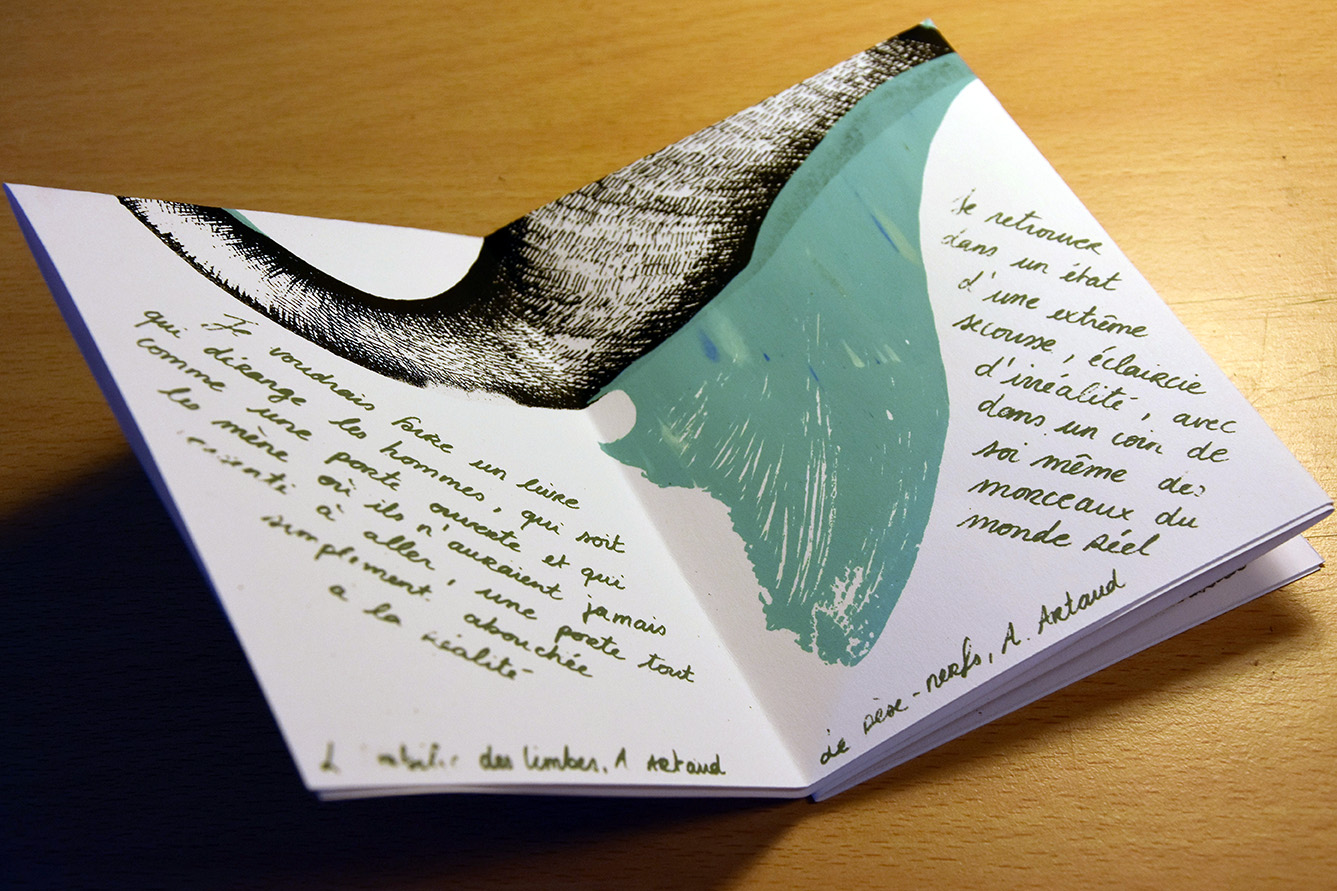 Je voudrais faire un livre
qui dérange les hommes, qui soit
comme une porte ouverte et qui
les mène où ils n'auraient jamais
à aller, une porte tout
simplement abouchée
à la réalité
des limbes, A Artaud
Se retrouver
dans un état
d'une extrême
secousse, éclaircie
d'irréalité, avec
dans un coin de
soi même des
morceaux du
monde réel
Le Pèse-nerfs, A. Artaud